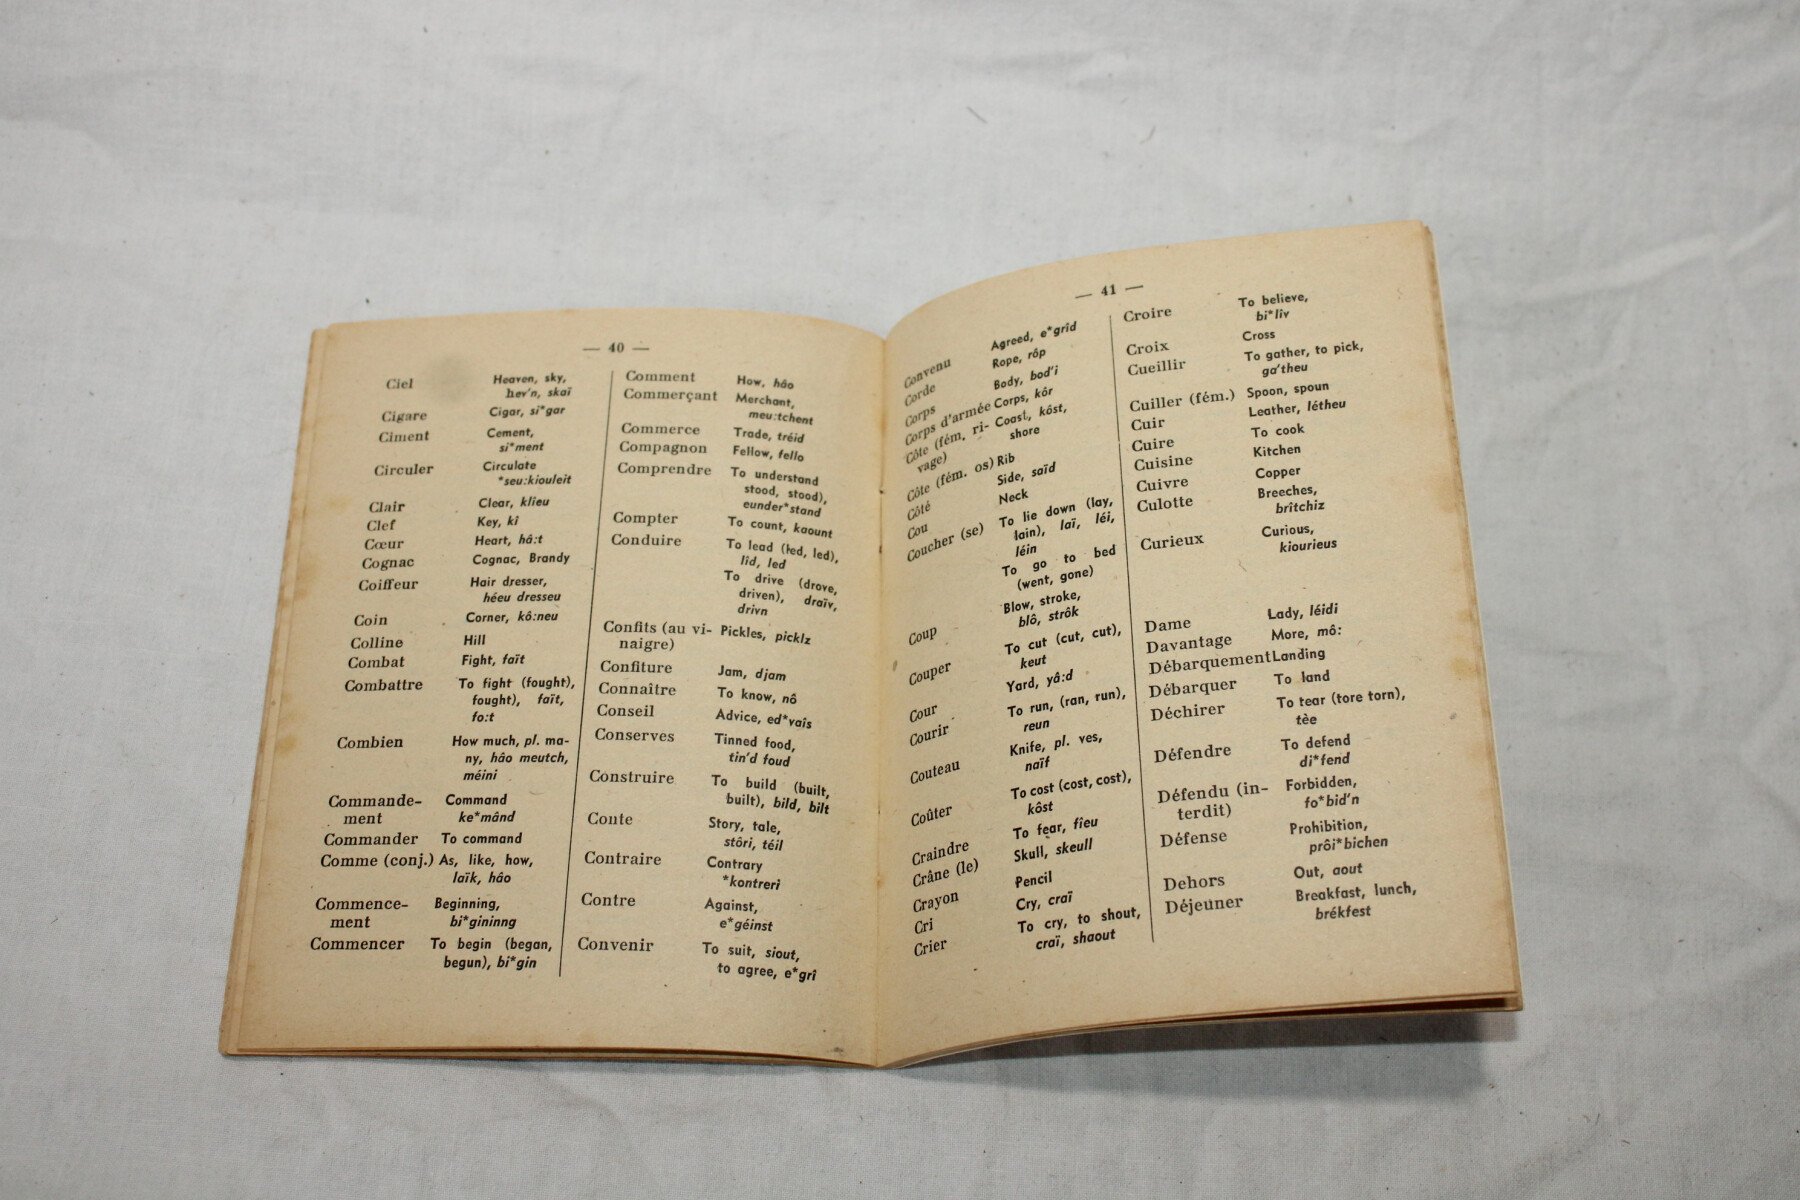 — 40 —
Ciel Heaven, sky,
hev'n, skaï
Cigare Cigar, si*gar
Ciment Cement,
si*ment
Circuler Circulate
*seu:kiouleit
Clair Clear, klieu
Clef Key, kî
Cœur Heart, hâ:t
Cognac Cognac, Brandy
Coiffeur Hair dresser,
héeu dresseu
Coin Corner, kô:neu
Colline Hill
Combat Fight, faït
Combattre To fight (fought),
fought), faït,
fo:t
Combien How much, pl. ma-
ny, hâo meutch,
méini
Commande- Command
ment ke*mând
Commander To command
Comme (conj.) As, like, how,
laïk, hâo
Commence- Beginning,
ment bi*gininng
Commencer To begin (began,
begun), bi*gin
Comment How, hâo
Commerçant Merchant,
meu:tchent
Commerce Trade, tréid
Compagnon Fellow, fello
Comprendre To understand
stood, stood),
eunder*stand
Compter To count, kaount
Conduire To lead (led, led),
lîd, led
To drive (drove,
driven), draïv,
drivn
Confits (au vi- Pickles, picklz
naigre)
Confiture Jam, djam
Connaître To know, nô
Conseil Advice, ed*vaïs
Conserves Tinned food,
tin'd foud
Construire To build (built,
built), bild, bilt
Conte Story, tale,
stôri, téil
Contraire Contrary
*kontreri
Contre Against,
e*géinst
Convenir To suit, siout,
to agree, e*grî
— 41 —
Convenu Agreed, e*grîd
Corde Rope, rôp
Corps Body, bod'i
Corps d'armée Corps, kór
Côte (fém. ri- Coast, kôst,
vage) shore
Côte (fém. os) Rib
Côté Side, saïd
Cou Neck
Coucher (se) To lie down (lay,
lain), laï, léi,
léin
To go to bed
(went, gone)
Coup Blow, stroke,
blô, strôk
Couper To cut (cut, cut),
keut
Cour Yard, yâ:d
Courir To run, (ran, run),
reun
Couteau Knife, pl. ves,
naïf
Coûter To cost (cost, cost),
kôst
Craindre To fear, fîeu
Crâne (le) Skull, skeull
Crayon Pencil
Cri Cry, craï
Crier To cry, to shout,
craï, shaout
Croire To believe,
bi*lîv
Croix Cross
Cueillir To gather, to pick,
ga'theu
Cuiller (fém.) Spoon, spoun
Cuir Leather, létheu
Cuire To cook
Cuisine Kitchen
Cuivre Copper
Culotte Breeches,
brîtchiz
Curieux Curious,
kiourieus
Dame Lady, léidi
Davantage More, mô:
Débarquement Landing
Débarquer To land
Déchirer To tear (tore torn),
tèe
Défendre To defend
di*fend
Défendu (in- Forbidden,
terdit) fo*bid'n
Défense Prohibition,
prôi*bichen
Dehors Out, aout
Déjeuner Breakfast, lunch,
brékfest